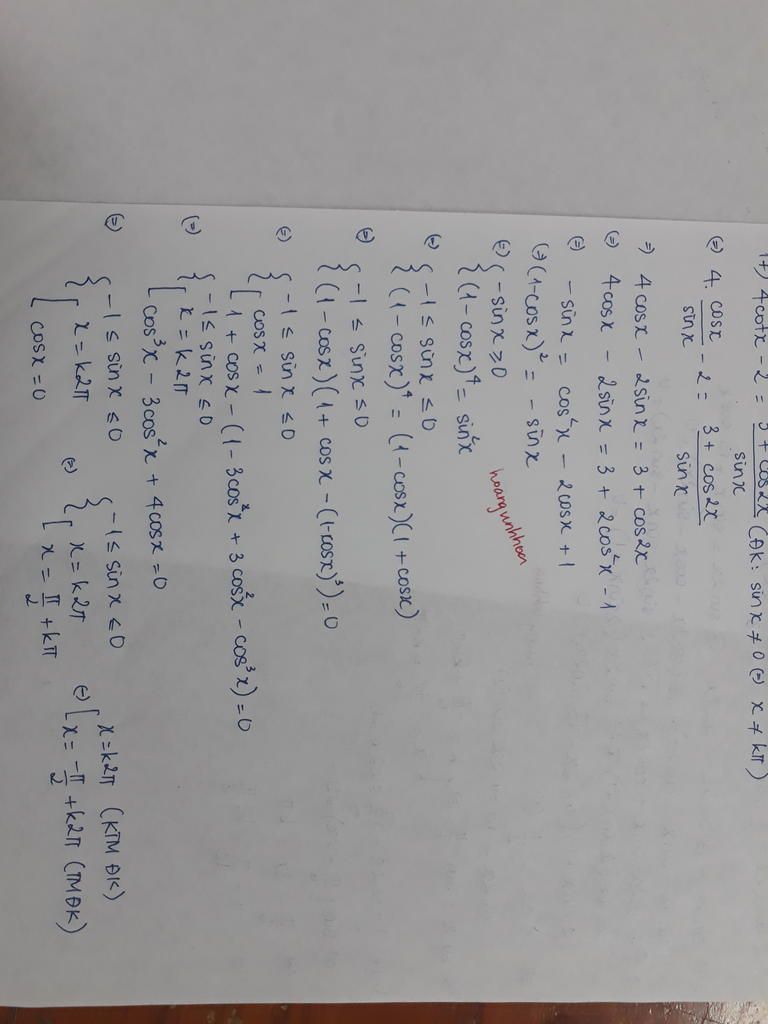 1+) 4cotx - 2 = (3 + cos2x)/sinx (ĐK: sinx ≠ 0 (=) x ≠ kπ)
(=) 4. cosx/sinx - 2 = (3 + cos2x)/sinx
=) 4cosx - 2sinx = 3 + cos2x
(=) 4cosx - 2sinx = 3 + 2cos²x - 1
(=) -sinx = cos²x - 2cosx + 1
(=) (1-cosx)² = -sinx
(=) { -sinx ≥ 0
(1-cosx)⁴ = sin²x
hoangunhhoa
(=) { -1 ≤ sinx ≤ 0
(1-cosx)⁴ = (1-cosx)(1+cosx)
(=) { -1 ≤ sinx ≤ 0
(1-cosx)(1+cosx-(1-cosx)³) = 0
(=) { -1 ≤ sinx ≤ 0
[ cosx = 1
1 + cosx - (1 - 3cosx + 3cos²x - cos³x) = 0
(=) { -1 ≤ sinx ≤ 0
[ x = k2π
cos³x - 3cos²x + 4cosx = 0
(=) { -1 ≤ sinx ≤ 0 (=) { -1 ≤ sinx ≤ 0 (=) [ x = k2π (KTMĐK)
[ x = k2π [ x = k2π x = -π/2 + k2π (TMĐK)
cosx = 0 x = π/2 + kπ